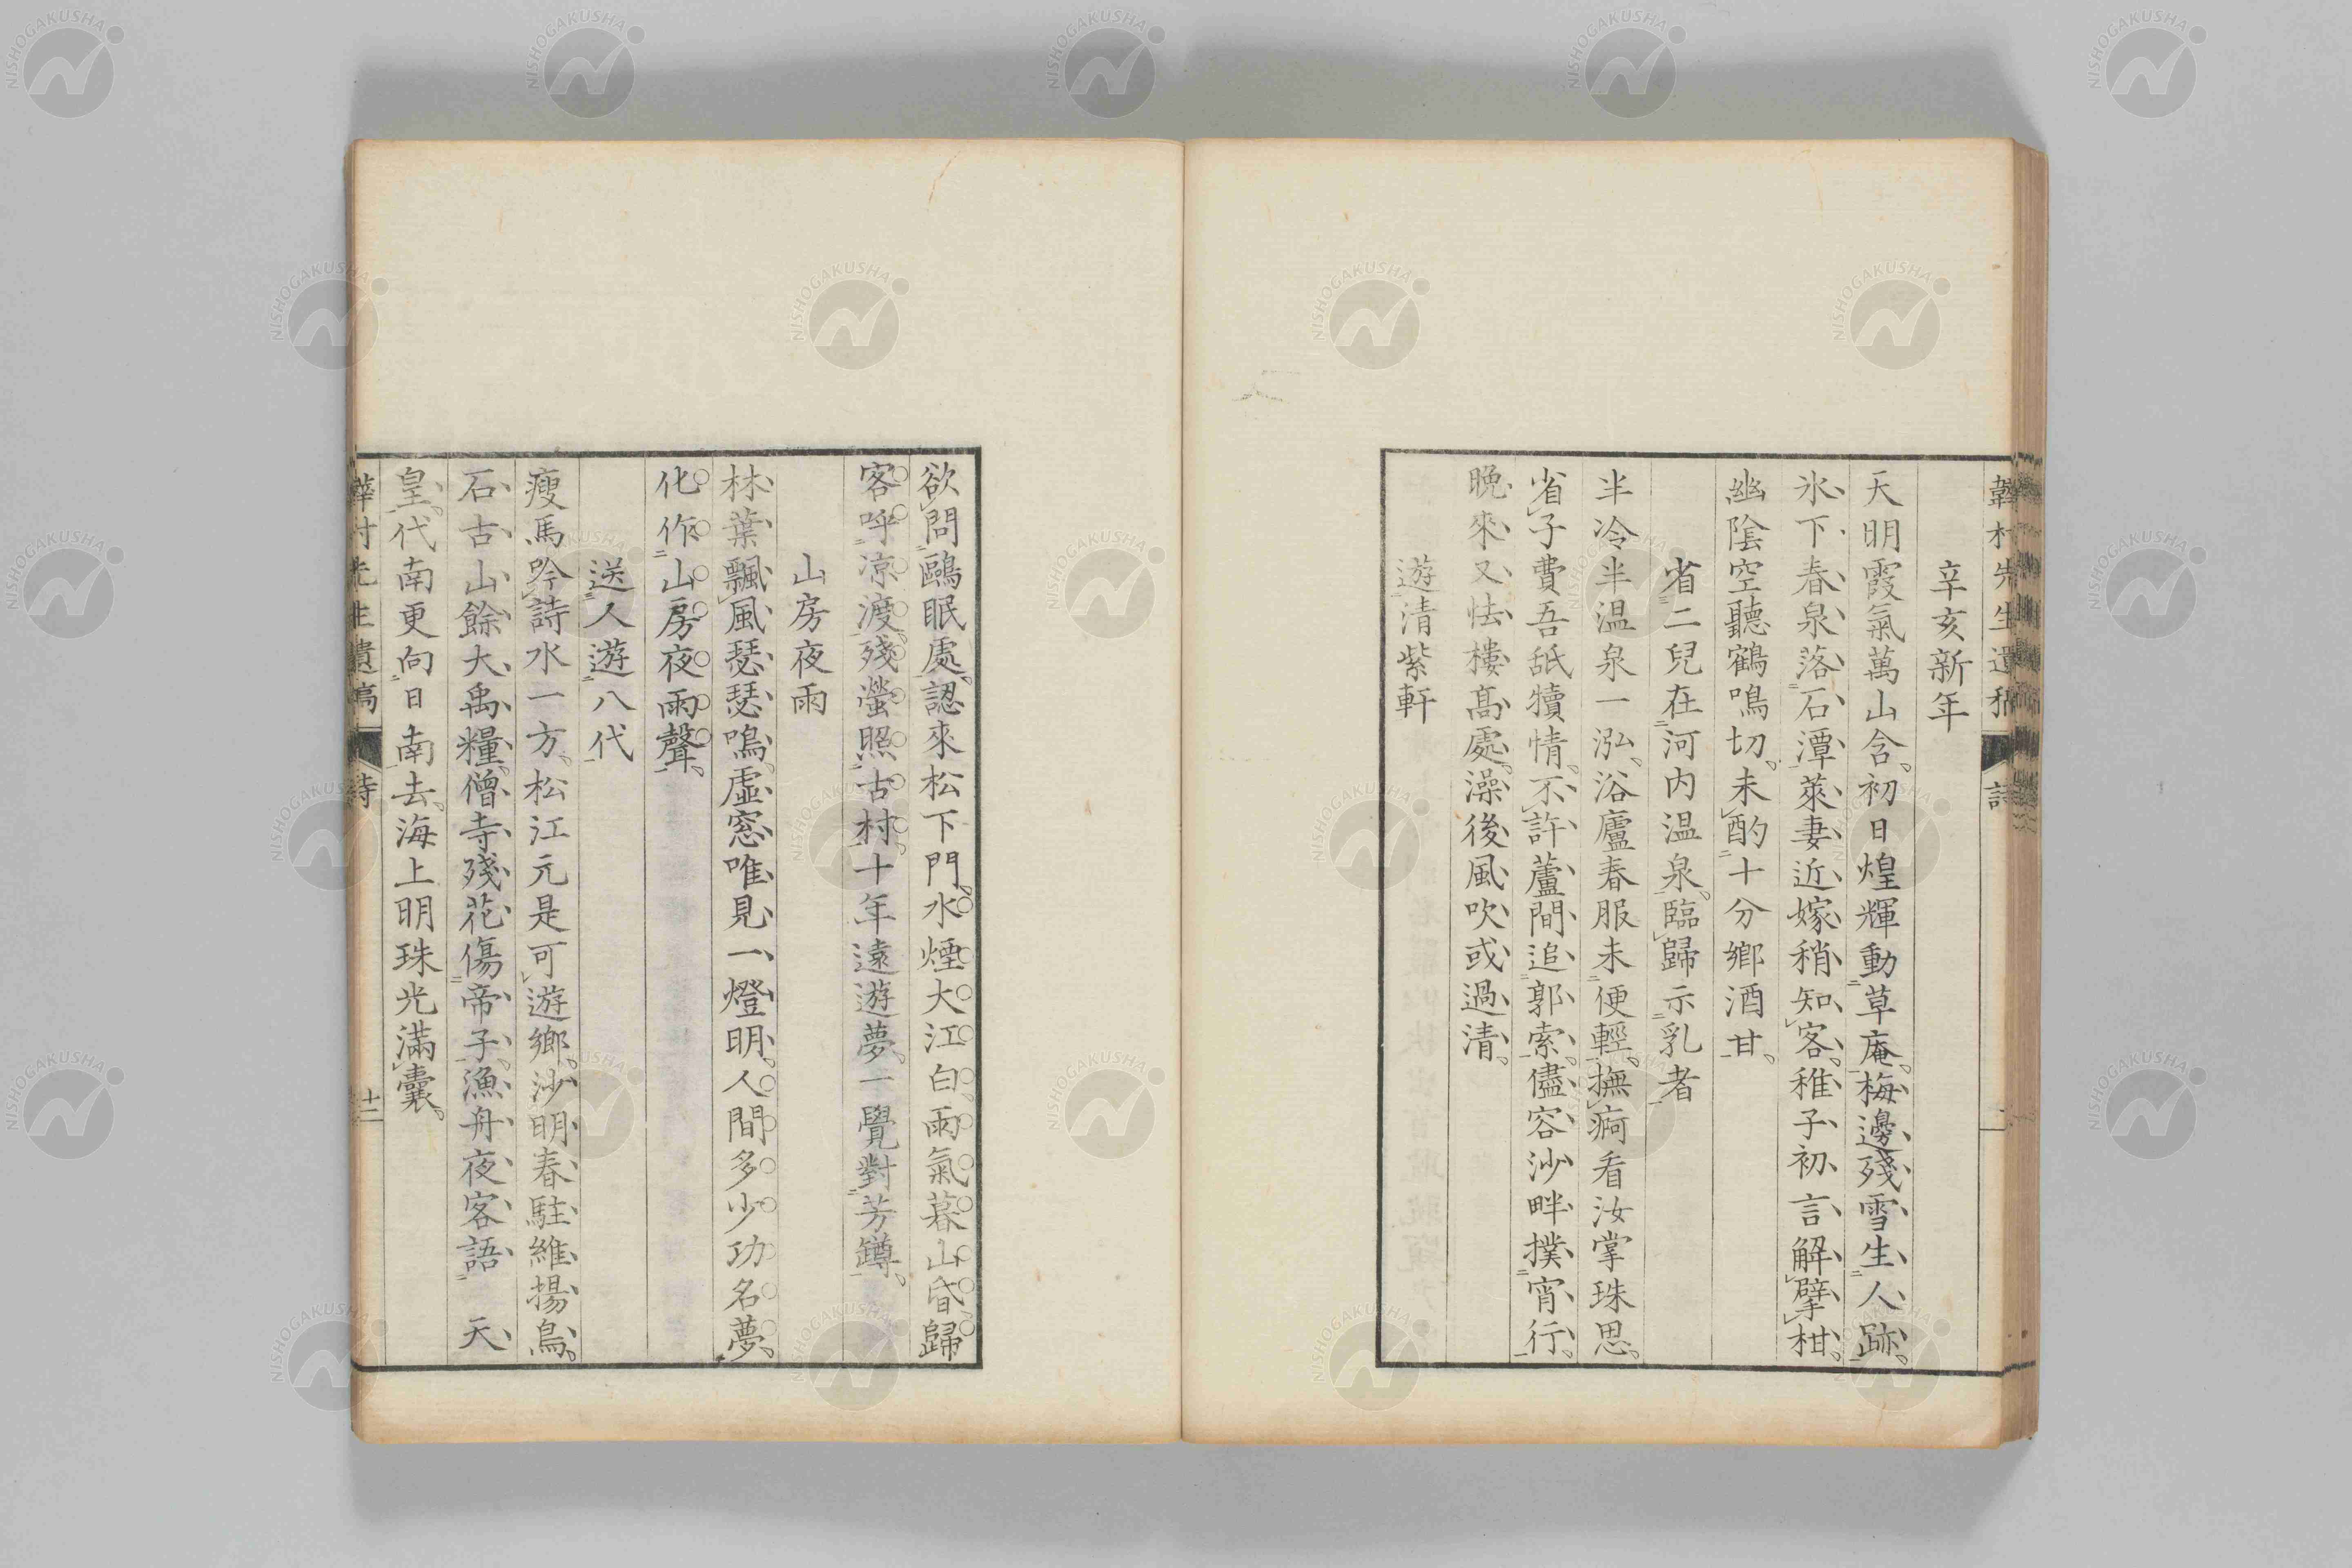 韡村先生遺稿 詩
辛亥新年
天明霞氣萬山含初日煌輝動草庵梅邊殘雪生人跡
氷下春泉落石潭萊妻近嫁稍知客稚子初言解擘柑
幽陰空聽鶴鳴切未酌十分鄉酒甘
省二兒在河内温泉臨歸示乳者
半冷半温泉一泓浴廬春服未便輕撫痾看汝掌珠思
省子費吾舐犢情不許蘆間追郭索儘容沙畔撲宵行
晩來又怯樓高處澡後風吹或過清
遊清紫軒
欲問鷗眠處認來松下門水煙大江白雨氣暮山昏歸
客呼凉渡殘螢照古村十年遠遊夢一覺對芳罇
山房夜雨
林葉飄風瑟瑟鳴虛窓唯見一燈明人間多少功名夢
化作山房夜雨聲
送人遊八代
瘦馬吟詩水一方松江元是可遊鄉沙明春駐維揚鳥
石古山餘大禹糧僧寺殘花傷帝子漁舟夜客語 天
皇代南更向日南去海上明珠光滿囊
韡村先生遺稿 詩 十二
NISHOGAKUSHA